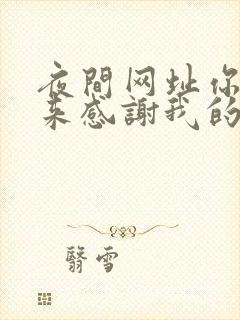 夜間网址你
来感謝我的
翳雪